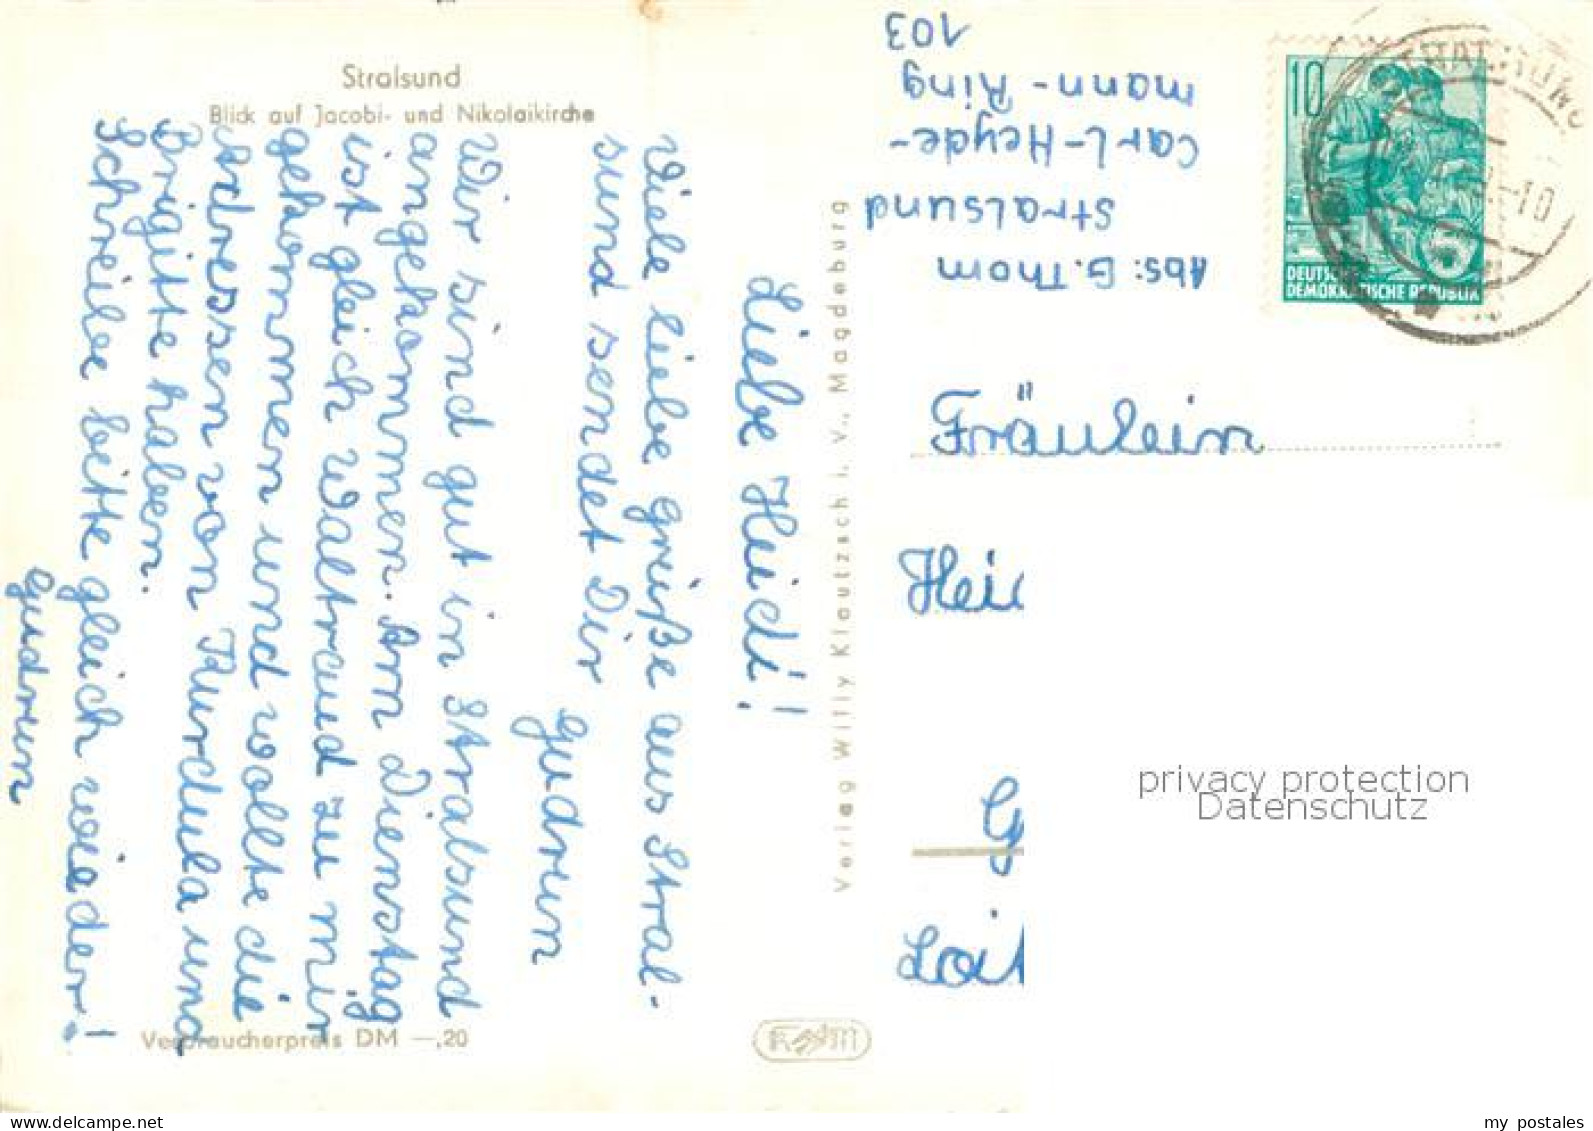 Stralsund
Blick auf Jacobi- und Nikolaikirche
Liebe Heidi!
Viele liebe Grüße aus Stral-
sund sendet Dir
Gudrun
Wir sind gut in Stralsund
angekommen. Am Dienstag
ist gleich Waltraud zu mir
gekommen und wollte die
Adressen von Kurdula und
Brigitte haben.
Schreibe bitte gleich wieder!
Gudrun
Verbraucherpreis DM —,20
Verlag Willy Klautzsch i. V., Magdeburg
Abs: G. Thom
Stralsund
Carl-Heyde-
mann-Ring
103
10
DEUTSCHE
DEMOKRATISCHE REPUBLIK
5
STRALSUND
-10
Fräulein
Hei
G
Loit
privacy protection
Datenschutz
my postales